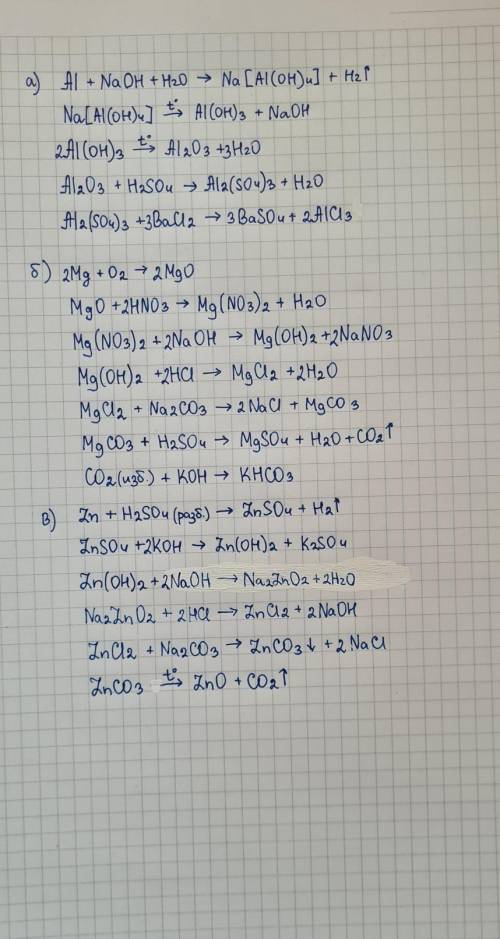 а) Al + NaOH + H2O → Na[Al(OH)4] + H2↑
Na[Al(OH)4] t°→ Al(OH)3 + NaOH
2Al(OH)3 t°→ Al2O3 +3H2O
Al2O3 + H2SO4 → Al2(SO4)3 + H2O
Al2(SO4)3 +3BaCl2 → 3BaSO4 + 2AlCl3
б) 2Mg + O2 → 2MgO
MgO +2HNO3 → Mg(NO3)2 + H2O
Mg(NO3)2 +2NaOH → Mg(OH)2 +2NaNO3
Mg(OH)2 +2HCl → MgCl2 +2H2O
MgCl2 + Na2CO3 → 2NaCl + MgCO3
MgCO3 + H2SO4 → MgSO4 + H2O + CO2↑
CO2 (изб.) + KOH → KHCO3
в) Zn + H2SO4 (разб.) → ZnSO4 + H2↑
ZnSO4 +2KOH → Zn(OH)2 + K2SO4
Zn(OH)2 + 2NaOH → Na2ZnO2 + 2H2O
Na2ZnO2 + 2HCl → ZnCl2 + 2NaOH
ZnCl2 + Na2CO3 → ZnCO3↓ + 2NaCl
ZnCO3 t°→ ZnO + CO2↑